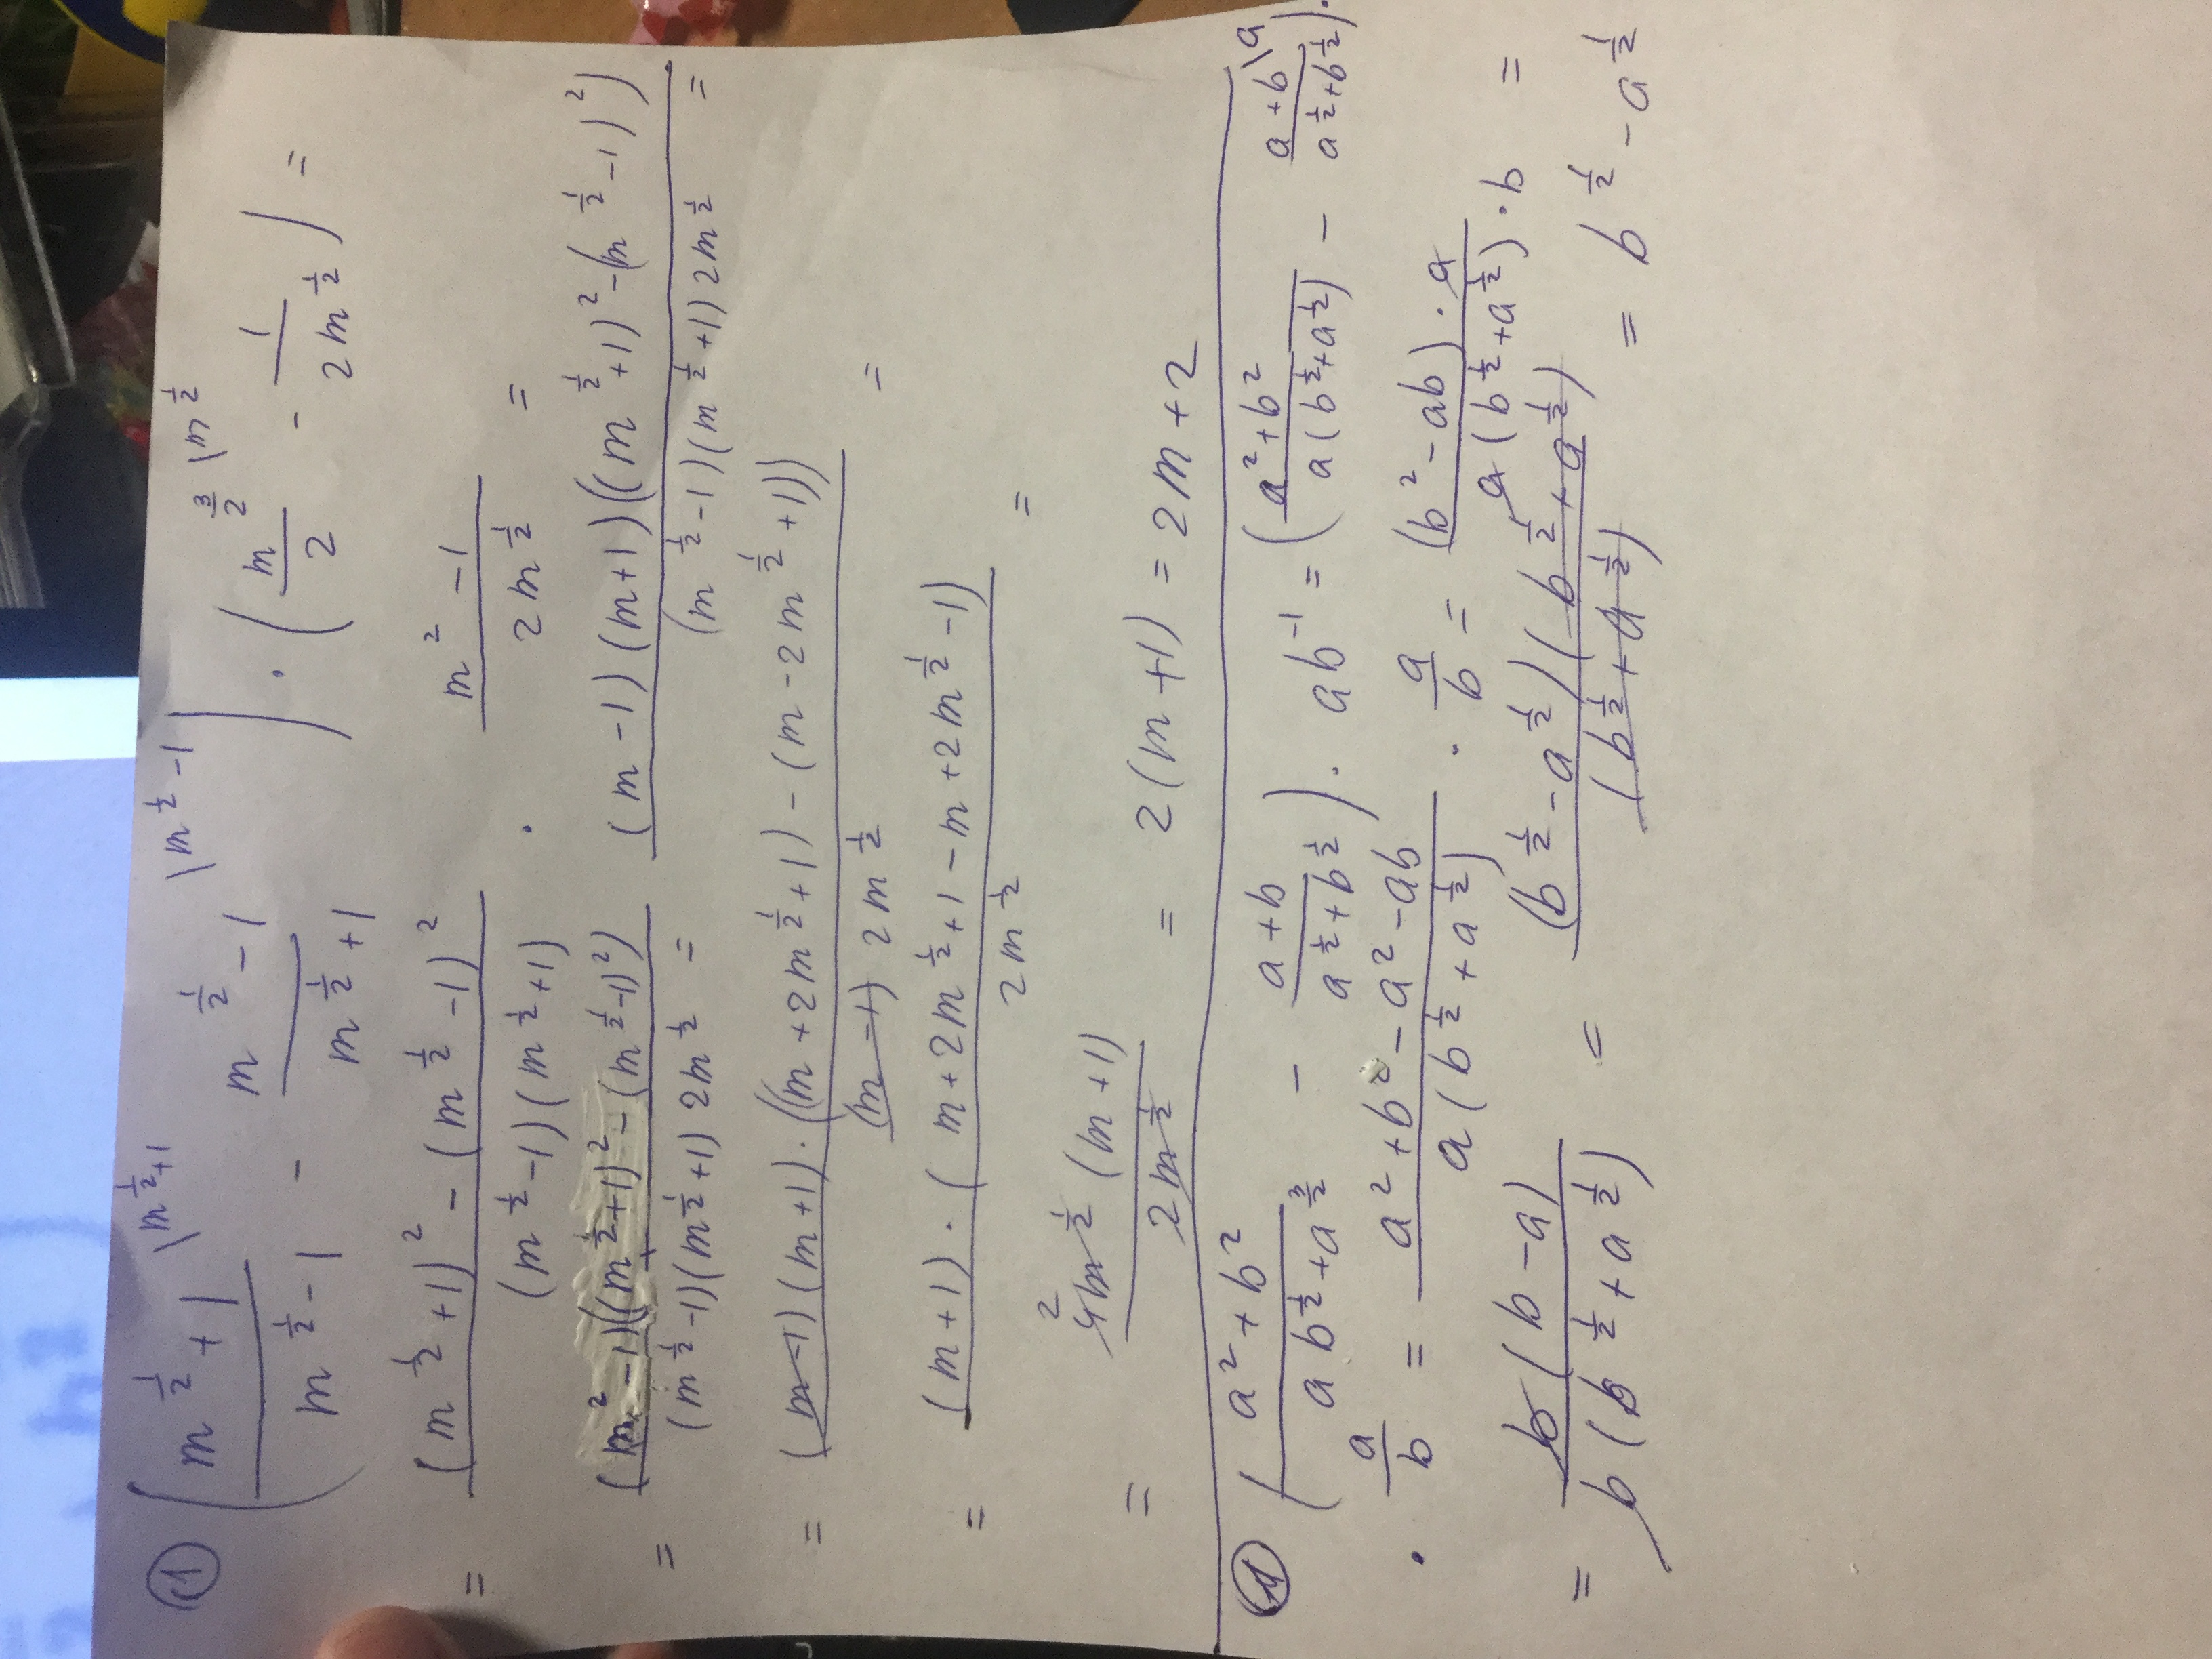 ① ((m^(1/2) + 1)/(m^(1/2) - 1) \m^(1/2)+1 - (m^(1/2) - 1)/(m^(1/2) + 1) \m^(1/2)-1) · (m^(3/2)/2 \m^(1/2) - 1/(2m^(1/2))) =
= ((m^(1/2) + 1)² - (m^(1/2) - 1)²)/((m^(1/2) - 1)(m^(1/2) + 1)) · (m² - 1)/(2m^(1/2)) =
= ((m² - 1)((m^(1/2) + 1)² - (m^(1/2) - 1)²)/((m^(1/2) - 1)(m^(1/2) + 1) 2m^(1/2)) = ((m - 1)(m + 1)((m^(1/2) + 1)² - (m^(1/2) - 1)²)/((m^(1/2) - 1)(m^(1/2) + 1) 2m^(1/2)) =
= ((m - 1)(m + 1) · ((m + 2m^(1/2) + 1) - (m - 2m^(1/2) + 1)))/((m - 1) 2m^(1/2)) =
= ((m + 1) · (m + 2m^(1/2) + 1 - m + 2m^(1/2) - 1))/(2m^(1/2)) =
= (4m^(1/2) (m + 1))/(2m^(1/2)) 2 = 2(m + 1) = 2m + 2
① ((a² + b²)/(ab^(1/2) + a^(3/2)) - (a + b)/(a^(1/2) + b^(1/2))) · ab^(-1) = ((a² + b²)/(a(b^(1/2) + a^(1/2))) - (a + b \a)/(a^(1/2) + b^(1/2))) ·
· a/b = (a² + b² - a² - ab)/(a(b^(1/2) + a^(1/2))) · a/b = ((b² - ab) · a)/(a(b^(1/2) + a^(1/2)) · b) =
= (b(b - a))/(b(b^(1/2) + a^(1/2))) = ((b^(1/2) - a^(1/2))(b^(1/2) + a^(1/2)))/((b^(1/2) + a^(1/2))) = b^(1/2) - a^(1/2)